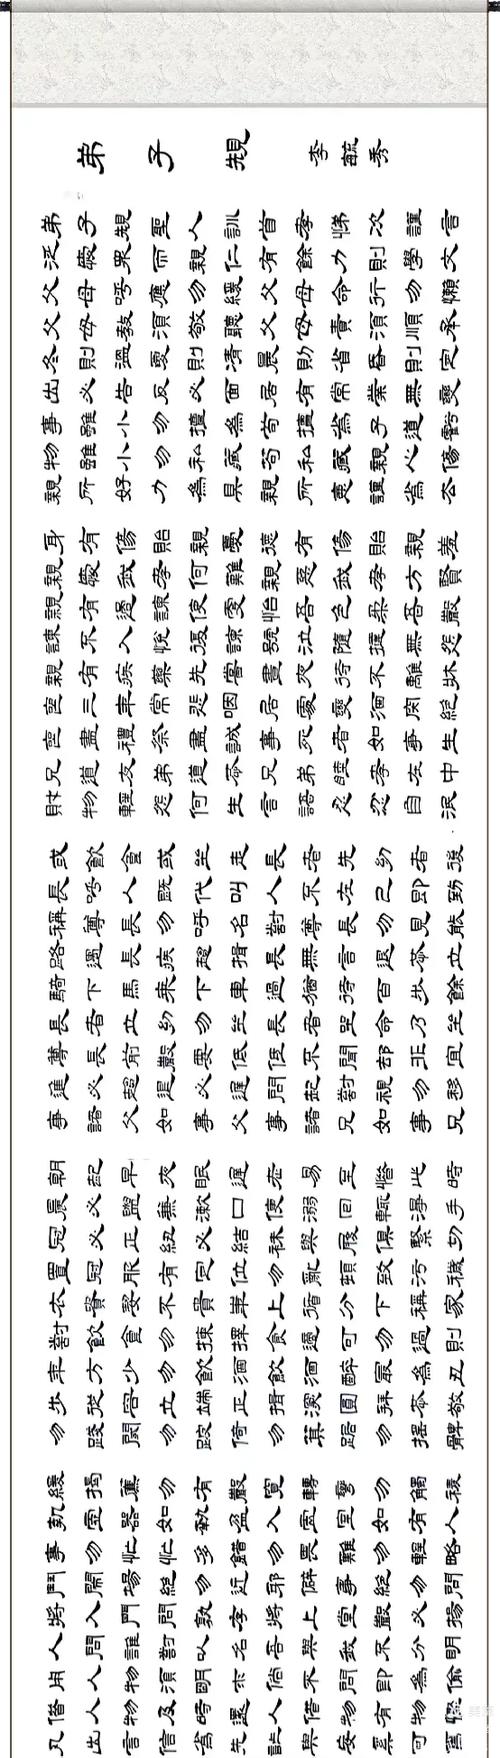 弟子規 李毓秀
弟子規聖人訓首孝悌次謹言
泛愛眾而親仁有餘力則學文
父母呼應勿緩父母命行勿懶
父母教須敬聽父母責須順承
冬則溫夏則凊晨則省昏則定
出必告反必面居有常業無變
事雖小勿擅為苟擅為子道虧
物雖小勿私藏苟私藏親心傷
親所好力為具親所惡謹為去
身有傷貽親憂德有傷貽親羞
親愛我孝何難親憎我孝方賢
親有過諫使更怡吾色柔吾聲
諫不入悅復諫號泣隨撻無怨
親有疾藥先嘗晝夜侍不離牀
喪三年常悲咽居處變酒肉絕
喪盡禮祭盡誠事死者如事生
兄道友弟道恭兄弟睦孝在中
財物輕怨何生言語忍忿自泯
或飲食或坐走長者先幼者後
長呼人即代叫人不在己即到
稱尊長勿呼名對尊長勿見能
路遇長疾趨揖長無言退恭立
騎下馬乘下車過猶待百步餘
長者立幼勿坐長者坐命乃坐
尊長前聲要低低不聞卻非宜
進必趨退必遲問起對視勿移
事諸父如事父事諸兄如事兄
朝起早夜眠遲老易至惜此時
晨必盥兼漱口便溺回輒淨手
冠必正紐必結襪與履俱緊切
置冠服有定位勿亂頓致污穢
衣貴潔不貴華上循分下稱家
對飲食勿揀擇食適可勿過則
年方少勿飲酒飲酒醉最為醜
步從容立端正揖深圓拜恭敬
勿踐閾勿跛倚勿箕踞勿搖髀
緩揭簾勿有聲寬轉彎勿觸棱
執虛器如執盈入虛室如有人
事勿忙忙多錯勿畏難勿輕略
鬥鬧場絕勿近邪僻事絕勿問
將入門問孰存將上堂聲必揚
人問誰對以名吾與我不分明
用人物須明求倘不問即為偷
借人物及時還人借物有勿慳
凡出言信為先詐與妄奚可焉